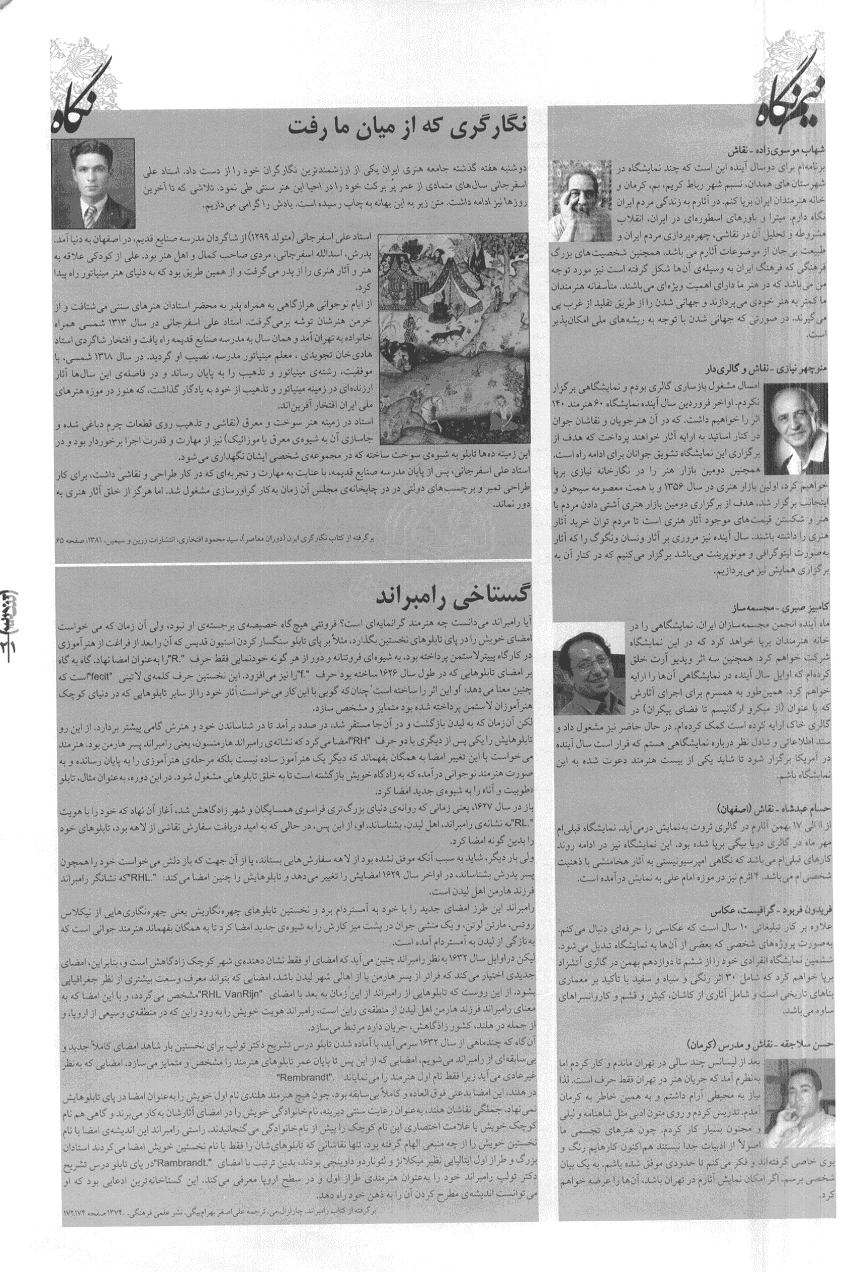 نیم نگاه
شهاب موسوی‌زاده - نقاش
برنامه‌ام برای دوسال آینده این است که چند نمایشگاه در
شهرستان های همدان، نسیم شهر رباط کریم، بم، کرمان و
خانه هنرمندان ایران برپا کنم. در آثارم به زندگی مردم ایران
نگاه دارم. میترا و باورهای اسطوره‌ای در ایران، انقلاب
مشروطه و تحلیل آن در نقاشی، چهره‌پردازی مردم ایران و
طبیعت بی‌جان از موضوعات آثارم می باشد. همچنین شخصیت‌های بزرگ
فرهنگی که فرهنگ ایران به وسیله‌ی آن‌ها شکل گرفته است نیز مورد توجه
من می‌باشد که در هنر ما دارای اهمیت ویژه‌ای می‌باشند. متأسفانه هنرمندان
ما کمتر به هنر خودی می‌پردازند و جهانی شدن را از طریق تقلید از غرب پی
می‌گیرند. در صورتی که جهانی شدن با توجه به ریشه‌های ملی امکان‌پذیر
است.
منوچهر نیازی - نقاش و گالری‌دار
امسال مشغول بازسازی گالری بودم و نمایشگاهی برگزار
نکردم. اواخر فروردین سال آینده نمایشگاه ۶۰ هنرمند ۱۴۰
اثر را خواهیم داشت. که در آن هنرجویان و نقاشان جوان
در کنار اساتید به ارایه آثار خواهند پرداخت که هدف از
برگزاری این نمایشگاه تشویق جوانان برای ادامه راه است.
همچنین دومین بازار هنر را در نگارخانه نیازی برپا
خواهیم کرد، اولین بازار هنری در سال ۱۳۵۶ و با همت معصومه سیحون و
اینجانب برگزار شد. هدف از برگزاری دومین بازار هنری آشتی دادن مردم با
هنر و شکستن قیمت‌های موجود آثار هنری است تا مردم توان خرید آثار
هنری را داشته باشند. سال آینده نیز مروری بر آثار ونسان ونگوگ را که آثار
به‌صورت لیتوگرافی و مونوپرینت می‌باشد برگزار می‌کنیم که در کنار آن به
برگزاری همایش نیز می‌پردازیم.
کامبیز صبری - مجسمه‌ساز
ماه آینده انجمن مجسمه‌سازان ایران، نمایشگاهی را در
خانه هنرمندان برپا خواهد کرد که در این نمایشگاه
شرکت خواهم کرد. همچنین سه اثر ویدیو آرت خلق
کرده‌ام که اوایل سال آینده در نمایشگاهی آن‌ها را ارایه
خواهم کرد. همین‌طور به همسرم برای اجرای آثارش
که با عنوان (از میکرو ارگانیسم تا فضای بیکران) در
گالری خاک ارایه کرده است کمک کرده‌ام. در حال حاضر نیز مشغول داد و
ستد اطلاعاتی و تبادل نظر درباره نمایشگاهی هستم که قرار است سال آینده
در آمریکا برگزار شود تا شاید یکی از بیست هنرمند دعوت شده به این
نمایشگاه باشم.
حسام عبدشاه - نقاش (اصفهان)
از ۱۱ الی ۱۷ بهمن آثارم در گالری ثروت به‌نمایش درمی‌آید. نمایشگاه قبلی‌ام
مهر ماه در گالری دریا بیگی برپا شده بود. این نمایشگاه نیز در ادامه روند
کارهای قبلی‌ام می‌باشد که نگاهی امپرسیونیستی به آثار هخامنشی با ذهنیت
شخصی‌ام می‌باشد. ۴ اثرم نیز در موزه امام علی به نمایش درآمده است.
فریدون فربود - گرافیست، عکاس
علاوه بر کار تبلیغاتی ۱۰ سال است که عکاسی را حرفه‌ای دنبال می‌کنم.
به‌صورت پروژه‌های شخصی که بعضی از آن‌ها به نمایشگاه تبدیل می‌شود.
ششمین نمایشگاه انفرادی خود را از ششم تا دوازدهم بهمن در گالری آتشزاد
برپا خواهم کرد که شامل ۳۰ اثر رنگی و سیاه و سفید با تأکید بر معماری
بناهای تاریخی است و شامل آثاری از کاشان، کیش و قشم و کاروانسراهای
ساوه می‌باشد.
حسن سلاجقه - نقاش و مدرس (کرمان)
بعد از لیسانس چند سالی در تهران ماندم و کار کردم اما
به‌نظرم آمد که جریان هنر در تهران فقط حرف است. لذا
نیاز به محیطی آرام داشتم و به همین خاطر به کرمان
آمدم. تدریس کردم و روی متون ادبی مثل شاهنامه و لیلی
و مجنون بسیار کار کردم. چون هنرهای تجسمی ما
اصولاً از ادبیات جدا نیستند هم‌اکنون کارهایم رنگ و
بوی خاصی گرفته‌اند و فکر می‌کنم تا حدودی موفق شده باشم. به یک بیان
شخصی برسم. اگر امکان نمایش آثارم در تهران باشد، آن‌ها را عرضه خواهم
کرد.
نگاه
نگارگری که از میان ما رفت
دوشنبه هفته گذشته جامعه هنری ایران یکی از ارزشمندترین نگارگران خود را از دست داد. استاد علی
اسفرجانی سال‌های متمادی از عمر پر برکت خود را در احیا این هنر سنتی طی نمود، تلاشی که تا آخرین
روزها نیز ادامه داشت. متن زیر به این بهانه به چاپ رسیده است. یادش را گرامی می‌داریم.
استاد علی اسفرجانی (متولد ۱۲۹۹) از شاگردان مدرسه صنایع قدیم، در اصفهان به دنیا آمد.
پدرش، اسدالله اسفرجانی، مردی صاحب کمال و اهل هنر بود. علی از کودکی علاقه به
هنر و آثار هنری را از پدر می‌گرفت و از همین طریق بود که به دنیای هنر مینیاتور راه پیدا
کرد.
از ایام نوجوانی هرازگاهی به همراه پدر به محضر استادان هنرهای سنتی می‌شتافت و از
خرمن هنرشان توشه برمی‌گرفت. استاد علی اسفرجانی در سال ۱۳۱۳ شمسی همراه
خانواده به تهران آمد و همان سال به مدرسه صنایع قدیمه راه یافت و افتخار شاگردی استاد
هادی‌خان تجویدی ، معلم مینیاتور مدرسه، نصیب او گردید. در سال ۱۳۱۸ شمسی، با
موفقیت، رشته‌ی مینیاتور و تذهیب را به پایان رساند و در فاصله‌ی این سال‌ها آثار
ارزنده‌ای در زمینه مینیاتور و تذهیب از خود به یادگار گذاشت، که هنوز در موزه هنرهای
ملی ایران افتخار آفرین‌اند.
استاد در زمینه هنر سوخت و معرق (نقاشی و تذهیب روی قطعات چرم دباغی شده و
جاسازی آن به شیوه‌ی معرق یا موزائیک) نیز از مهارت و قدرت اجرا برخوردار بود و در
این زمینه ده‌ها تابلو به شیوه‌ی سوخت ساخته که در مجموعه‌ی شخصی ایشان نگهداری می‌شود.
استاد علی اسفرجانی، پس از پایان مدرسه صنایع قدیمه، با عنایت به مهارت و تجربه‌ای که در کار طراحی و نقاشی داشت، برای کار
طراحی تمبر و برچسب‌های دولتی در در چاپخانه‌ی مجلس آن زمان به‌کار گراورسازی مشغول شد. اما هرگز از خلق آثار هنری به
دور نماند.
برگرفته از کتاب نگارگری ایران (دوران معاصر)، سید محمود افتخاری، انتشارات زرین و سیمین، ۱۳۸۱، صفحه ۶۵
گستاخی رامبراند
آیا رامبراند می‌دانست چه هنرمند گرانمایه‌ای است؟ فروتنی هیچ‌گاه خصیصه‌ی برجسته‌ی او نبود، ولی آن زمان که می خواست
امضای خویش را در پای تابلوهای نخستین بگذارد، مثلاً بر پای تابلو سنگسار کردن استیون قدیس که آن را بعد از فراغت از هنرآموزی
در کارگاه پیترلاستمن پرداخته بود، به شیوه‌ای فروتنانه و دور از هر گونه خودنمایی فقط حرف "R."را به‌عنوان امضا نهاد. گاه به گاه
بر امضای تابلوهایی که در طول سال ۱۶۲۶ ساخته بود حرف "f."را نیز می‌افزود. این نخستین حرف کلمه‌ی لاتینی "fecit"است که
چنین معنا می‌دهد: او این اثر را ساخته است؛ چنان‌که گویی با این کار می‌خواست آثار خود را از سایر تابلوهایی که در دنیای کوچک
هنرآموزان لاستمن پرداخته شده بود متمایز و مشخص سازد.
لکن آن‌زمان که به لیدن بازگشت و در آن‌جا مستقر شد، در صدد برآمد تا در شناساندن خود و هنرش گامی پیشتر بردارد. از این رو
تابلوهایش را یکی پس از دیگری با دو حرف "RH"امضا می‌کرد که نشانه‌ی رامبراند هارمنسون، یعنی رامبراند پسر هارمن بود. هنرمند
می‌خواست با این تغییر امضا به همگان بفهماند که دیگر یک هنرآموز ساده نیست بلکه مرحله‌ی هنرآموزی را به پایان رسانده و به
صورت هنرمند نوجوانی درآمده که به زادگاه خویش بازگشته است تا به خلق تابلوهایی مشغول شود. در این دوره، به‌عنوان مثال، تابلو
«طوبیت و آنا» را به شیوه‌ی جدید امضا کرد.
باز در سال ۱۶۲۷، یعنی زمانی که روانه‌ی دنیای بزرگ‌تری فراسوی همسایگان و شهر زادگاهش شد، آغاز آن نهاد که خود را با هویت
"RL."به نشانه‌ی رامبراند، اهل لیدن، بشناساند. او، از این پس، در حالی که به امید دریافت سفارش نقاشی از لاهه بود، تابلوهای خود
را بدین گونه امضا کرد.
ولی بار دیگر، شاید به سبب آنکه موفق نشده بود از لاهه سفارش‌هایی بستاند، یا از آن جهت که باز دلش می‌خواست خود را همچون
پسر پدرش بشناساند، در اواخر سال ۱۶۲۹ امضایش را تغییر می‌دهد و تابلوهایش را چنین امضا می‌کند: "RHL."که نشانگر رامبراند
فرزند هارمن اهل لیدن است.
رامبراند این طرز امضای جدید را با خود به آمستردام برد و نخستین تابلوهای چهره‌نگاریش یعنی چهره‌نگاری‌هایی از نیکلاس
روتس، مارتن لوتن، و یک منشی جوان در پشت میز کارش را به شیوه‌ی جدید امضا کرد تا به همگان بفهماند هنرمند جوانی است که
به‌تازگی از لیدن به آمستردام آمده است.
لیکن در اوایل سال ۱۶۳۲ به‌نظر رامبراند چنین می‌آید که امضای او فقط نشان دهنده‌ی شهر کوچک زادگاهش است و، بنابراین، امضای
جدیدی اختیار می‌کند که فراتر از پسر هارمن یا از اهالی شهر لیدن باشد. امضایی که بتواند معرف وسعت بیشتری از نظر جغرافیایی
بشود. از این روست که تابلوهایی از رامبراند از این زمان به بعد با امضای "RHL VanRijn"مشخص می‌گردد، و با این امضا که به
معنای رامبراند فرزند هارمن اهل لیدن از منطقه‌ی راین است، رامبراند هویت خویش را به رود راین که در منطقه‌ی وسیعی از اروپا، و
از جمله در هلند، کشور زادگاهش، جریان دارد مرتبط می‌سازد.
آن گاه که چندماهی از سال ۱۶۳۲ سر می‌آید، با آماده شدن تابلو درس تشریح دکتر تولپ برای نخستین بار شاهد امضای کاملاً جدید و
بی‌سابقه‌ای از رامبراند می‌شویم، امضایی که از این پس تا پایان عمر تابلوهای هنرمند را مشخص و متمایز می‌سازد. امضایی که به‌نظر
غیرعادی می‌آید زیرا فقط نام اول هنرمند را می‌نمایاند "Rembrandt."
در هلند، این امضا بدعتی فوق العاده و کاملاً بی‌سابقه بود، چون هیچ هنرمند هلندی نام اول خویش را به‌عنوان امضا در پای تابلوهایش
نمی‌نهاد. جملگی نقاشان هلند، به‌عنوان رعایت سنتی دیرینه، نام‌خانوادگی خویش را در امضای آثارشان به‌کار می‌برند و گاهی هم نام
کوچک خویش یا علامت اختصاری این نام کوچک را پیش از نام‌خانوادگی می‌گنجانیدند. راستی رامبراند این اندیشه‌ی امضا با نام
نخستین خویش را از چه منبعی الهام گرفته بود، تنها نقاشانی که تابلوهای‌شان را فقط با نام نخستین خویش امضا می‌کردند استادان
بزرگ و طراز اول ایتالیایی نظیر میکلانژ و لئوناردو داوینچی بودند. بدین ترتیب با امضای "Rambrandt."در پای تابلو درس تشریح
دکتر تولپ رامبراند خود را به‌عنوان هنرمندی طراز اول و در سطح اروپا معرفی می‌کند. این گستاخانه‌ترین ادعایی بود که او
می‌توانست اندیشه‌ی مطرح کردن آن را به ذهن خود راه دهد.
برگرفته از کتاب رامبراند، چارلزال‌می، ترجمه علی‌اصغر بهرام‌بیگی، نشر علمی فرهنگی، ۱۳۷۴، صفحه ۱۷۲،۱۷۴